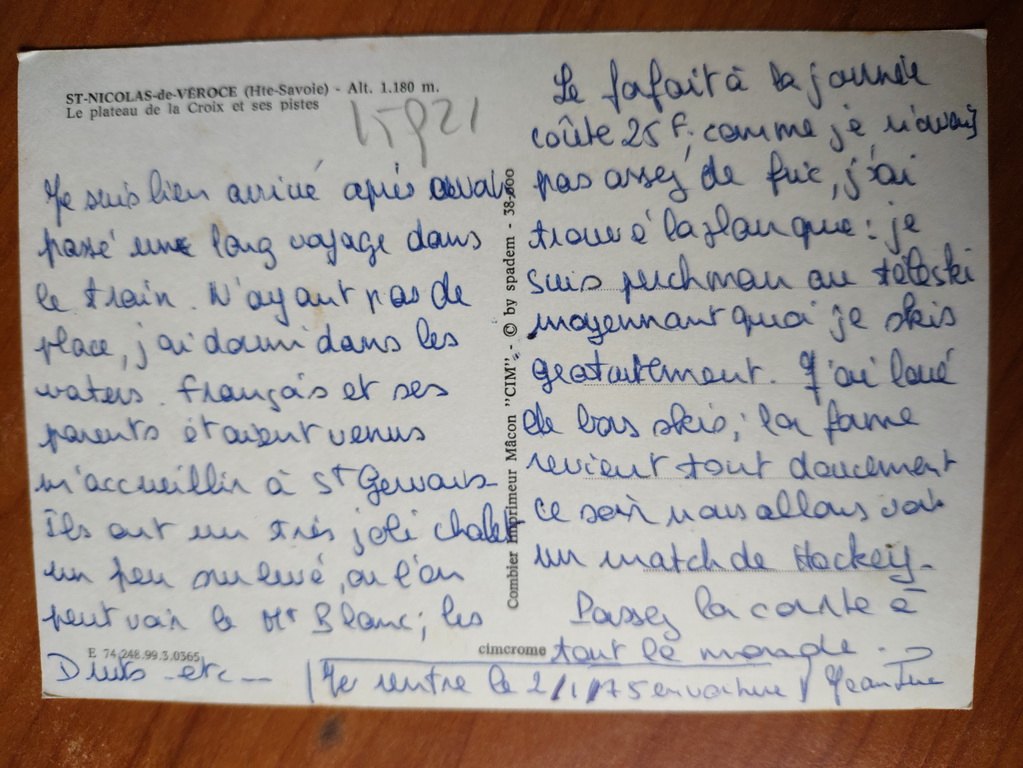 ST-NICOLAS-de-VÉROCE (Hte-Savoie) - Alt. 1.180 m.
Le plateau de la Croix et ses pistes
Je suis bien arrivé après avoir
passé une long voyage dans
le train. N'ayant pas de
place, j'ai dormi dans les
waters. François et ses
parents étaient venus
m'accueillir à St Gervais
Ils ont un très joli chalet
un peu surlevé, ou l'on
peut voir le Mt Blanc; les
E 74.248.99.3.0365
etc --
Combier Imprimeur Mâcon "CIM" - © by spadem - 38-000
Le forfait à la journée
coûte 25 F, comme je n'avais
pas assez de fric, j'ai
trouvé la planque : je
suis perchman au téléski
moyennant quoi je skis
gratuitement. J'ai loué
de bons skis; la forme
revient tout doucement
ce soir nous allons voir
un match de Hockey.
Passez la carte à
cimcrome
tout le monde.
Je rentre le 2/1/75 en voiture Jean Luc